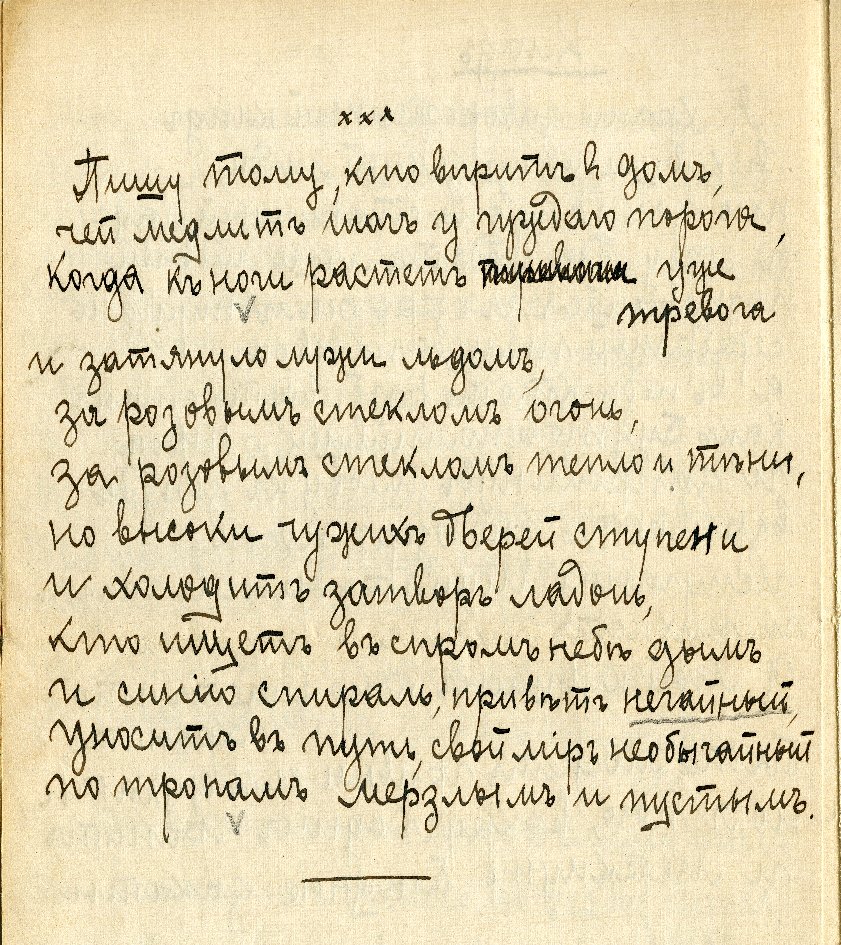 ххх
Пишу тому, кто вѣритъ в домъ,
чей медлитъ шагъ у чуждаго порога,
когда къ ночи растетъ уже
тревога
и затянуло лужи льдомъ,
за розовымъ стекломъ огонь,
за розовымъ стекломъ тепло и тѣни,
но высоки чужихъ дверей ступени
и холодитъ затворъ ладонь,
кто ищетъ въ сѣромъ небѣ дымъ
и синюю спираль, привѣтъ нечайный,
уноситъ въ путь, свой мiръ необычайный
по тропамъ мерзлымъ и пустымъ.